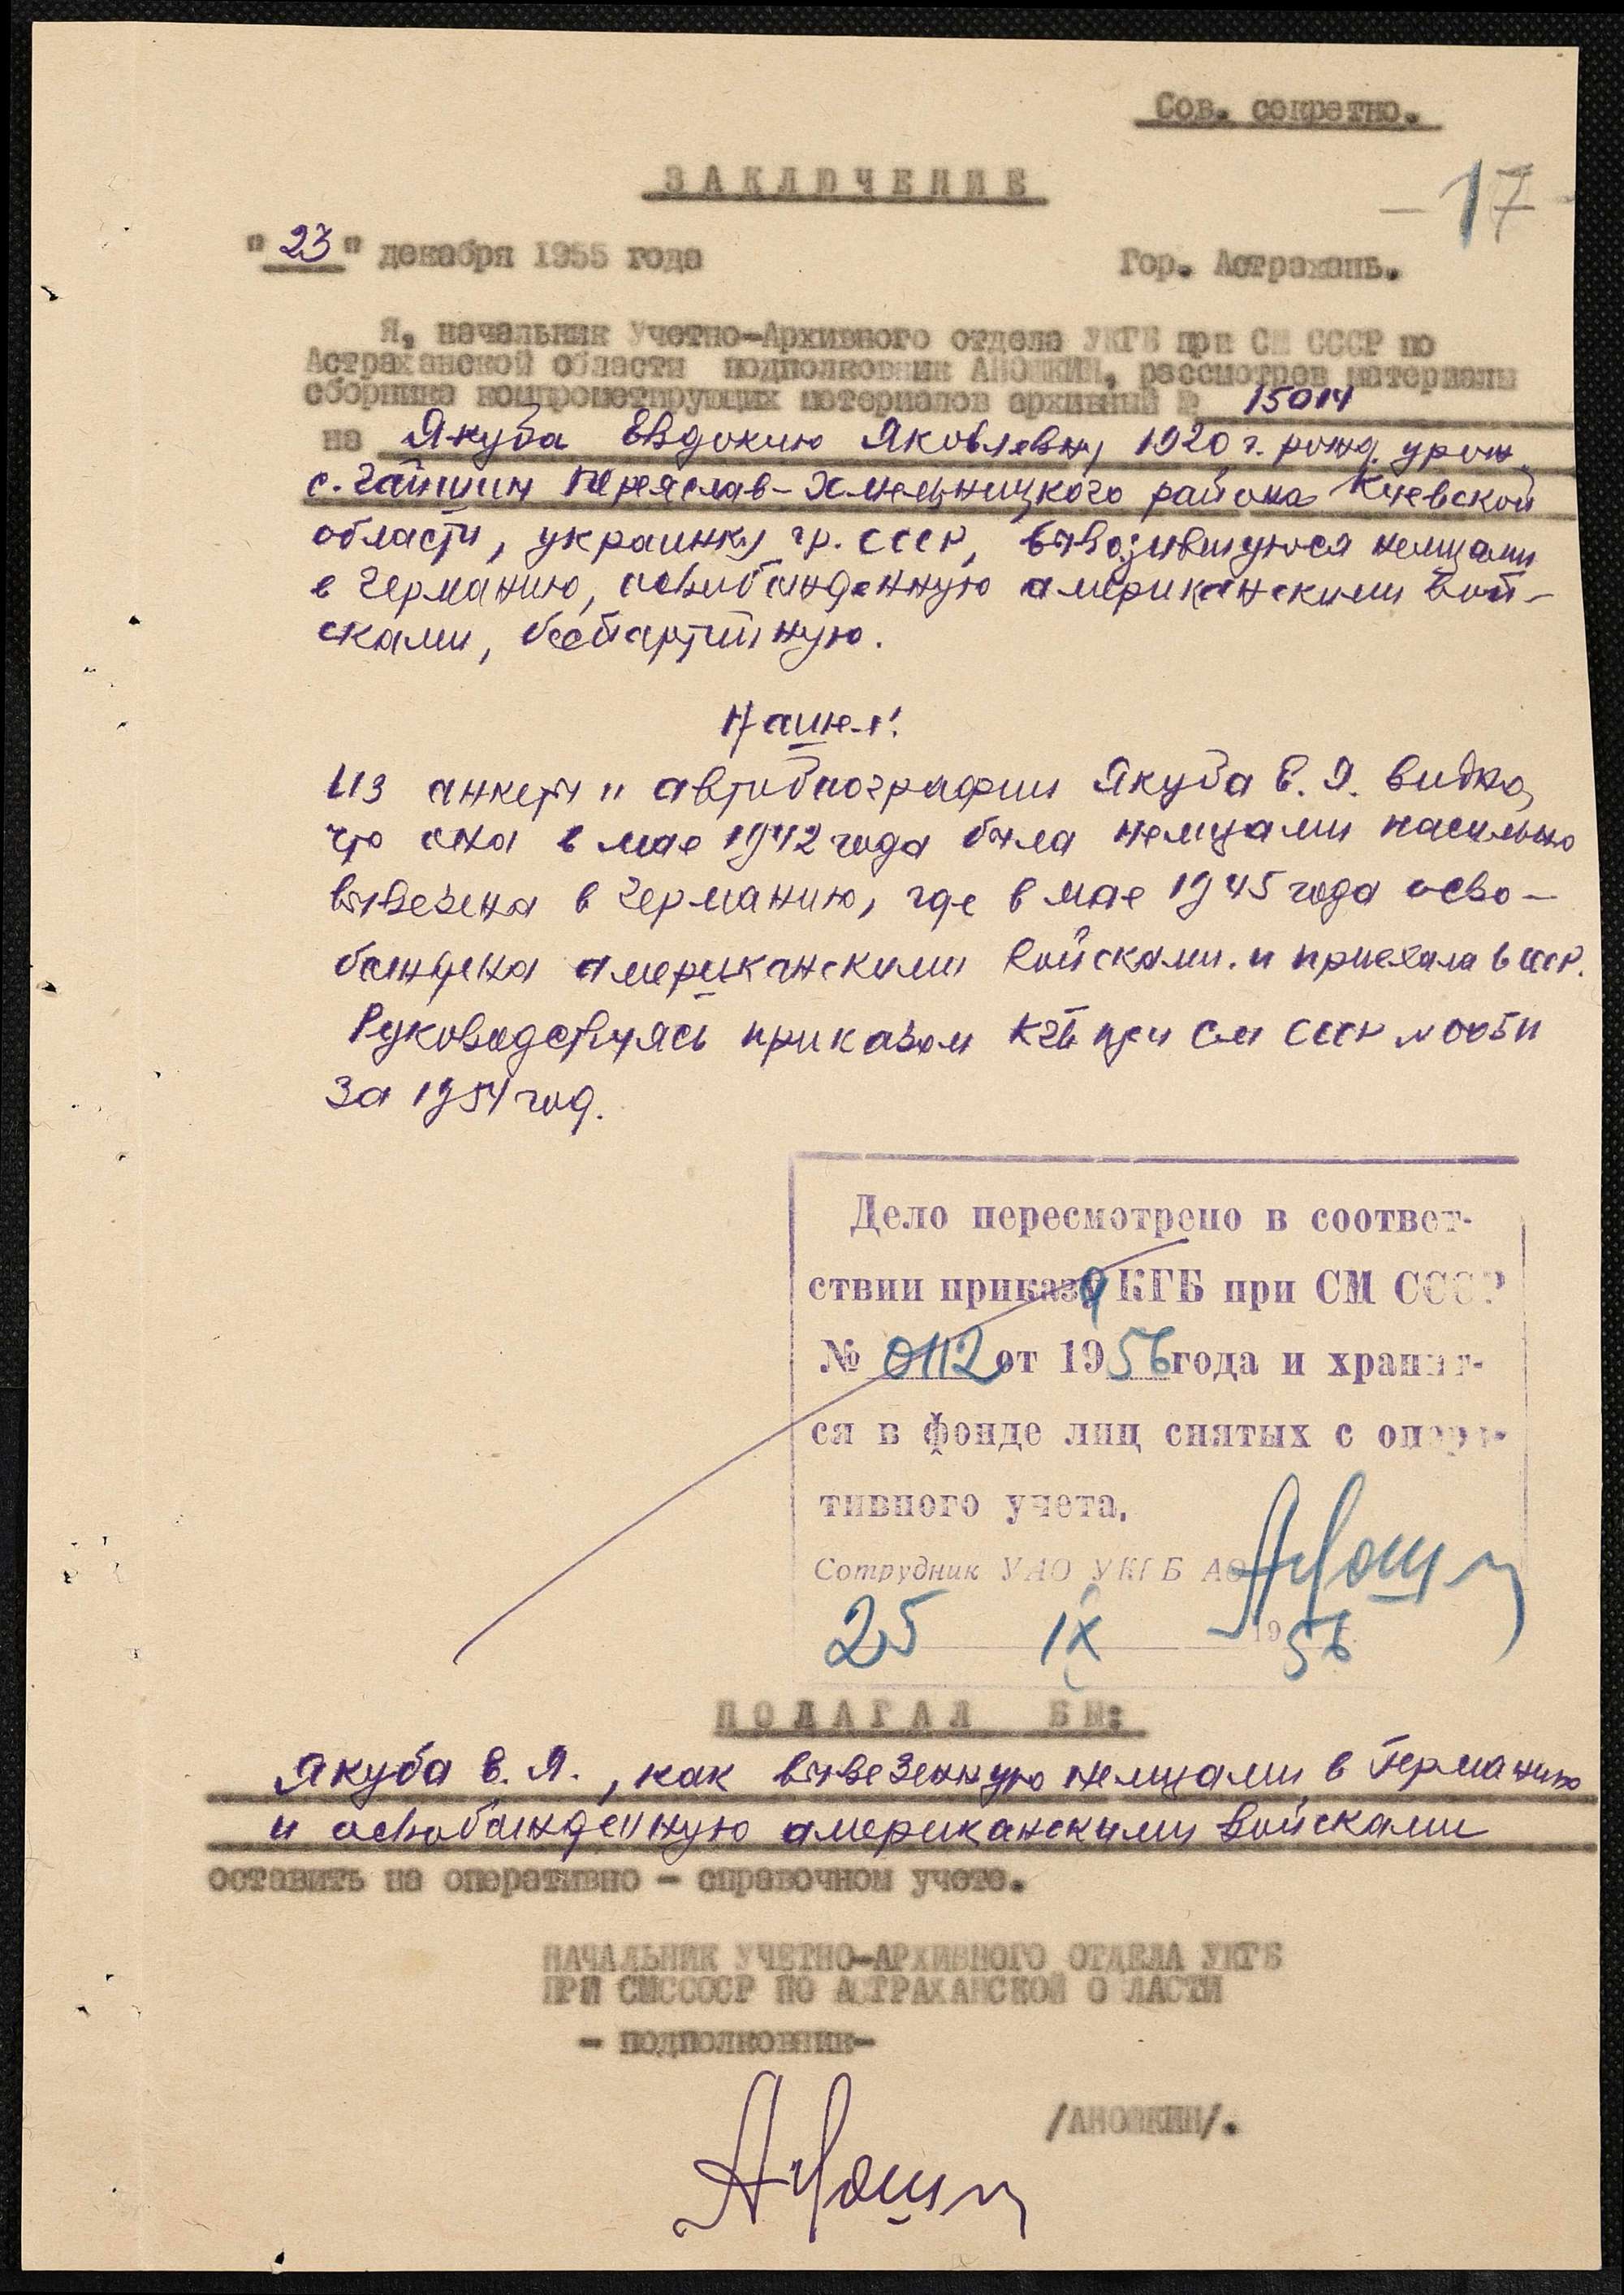 Сов. секретно.
ЗАКЛЮЧЕНИЕ
- 17 -
"23" декабря 1955 года Гор. Астрахань.
Я, начальник Учетно-Архивного отдела УКГБ при СМ СССР по
Астраханской области подполковник АНОШКИН, рассмотрев материалы
сборника компрометирующих материалов архивный № 15014
на Якуба Евдокию Яковлевну 1920 г. рожд. урож.
с. Гайшин Переяслав-Хмельницкого района Киевской
области, украинку, гр. СССР, вывозившуюся немцами
в Германию, освобожденную американскими вой-
сками, беспартийную.
Нашел:
Из анкеты и автобиографии Якуба Е. Я. видно,
что она в мае 1942 года была немцами насильно
вывезена в Германию, где в мае 1945 года осво-
бождена американскими войсками. и приехала в СССР.
Руководствуясь приказом КГБ при СМ СССР №
за 1954 год.
Дело пересмотрено в соответ-
ствии приказу КГБ при СМ СССР
№ 0112 от 1956 года и хранит-
ся в фонде лиц снятых с опера-
тивного учета.
Сотрудник УАО УКГБ АО
25 IX 1956
ПОЛАГАЛ БЫ:
Якуба Е. Я., как вывезенную немцами в Германию
и освобожденную американскими войсками
оставить на оперативно - справочном учете.
НАЧАЛЬНИК УЧЕТНО-АРХИВНОГО ОТДЕЛА УКГБ
ПРИ СМСССР ПО АСТРАХАНСКОЙ О ЛАСТИ
- подполковник-
/АНОШКИН/.